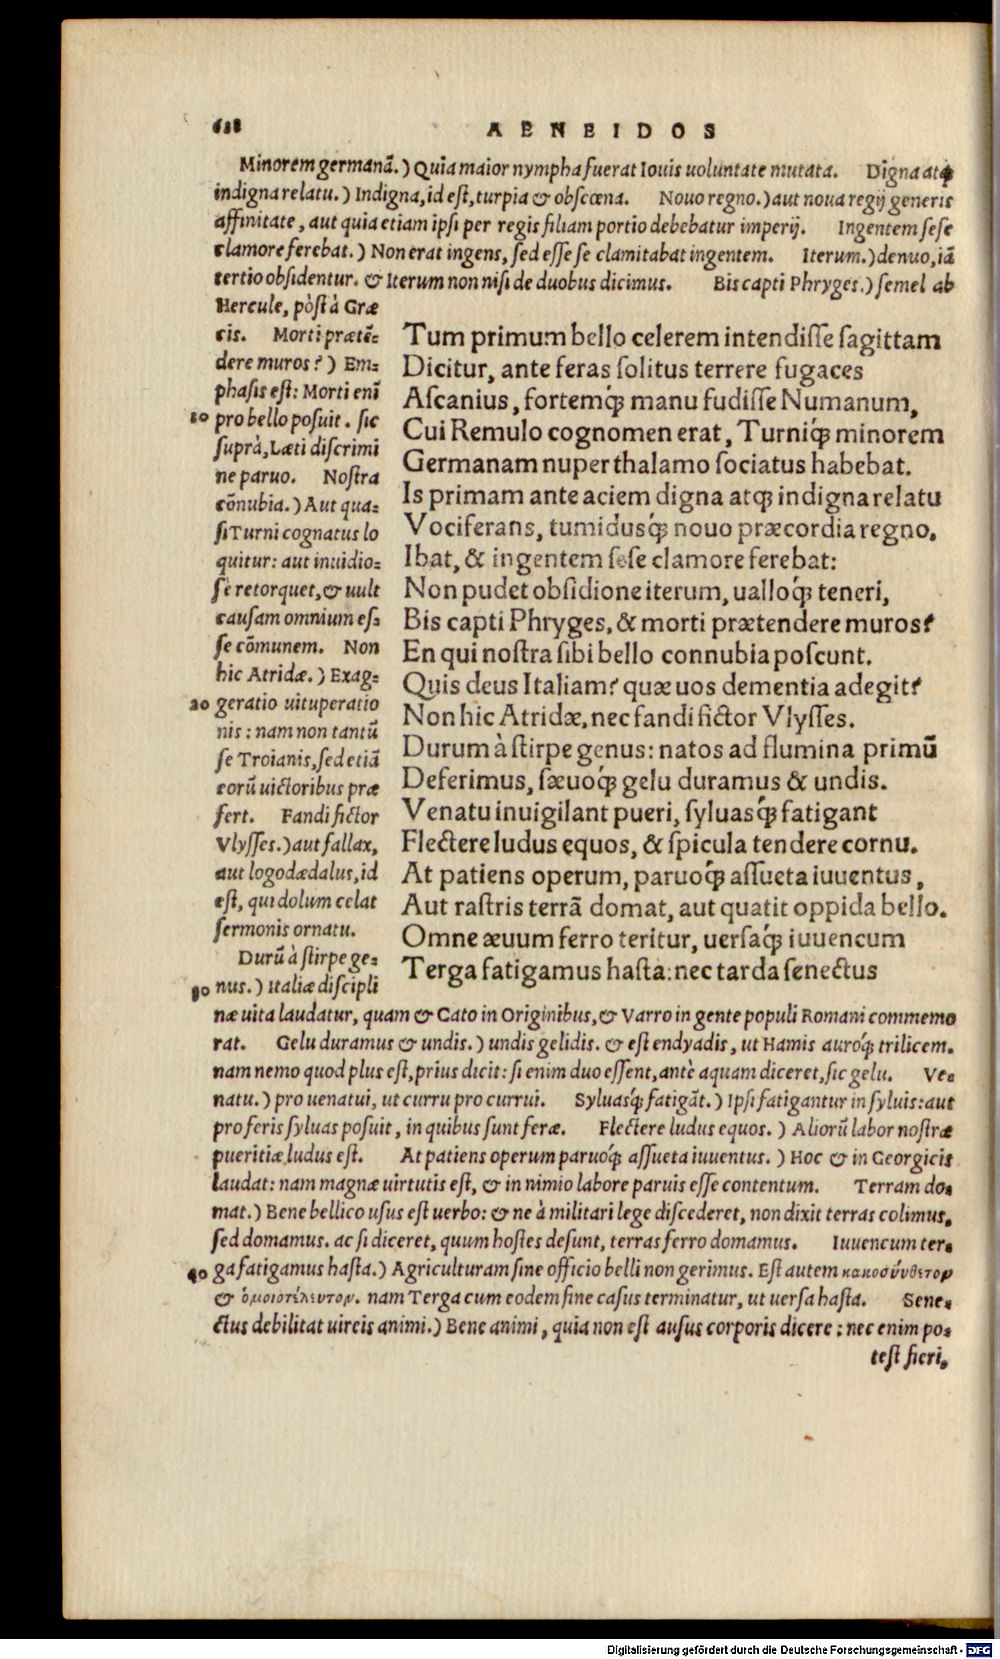 618
AENEIDOS
Minorem germanā.) Quia maior nympha fuerat Iouis uoluntate mutata. Digna atq́
indigna relatu.) Indigna, id eſt, turpia & obſcœna. Nouo regno.) aut noua regij generis
affinitate, aut quia etiam ipſi per regis filiam portio debebatur imperij. Ingentem ſeſe
clamore ferebat.) Non erat ingens, ſed eſſe ſe clamitabat ingentem. Iterum.) denuo, iā
tertio obſidentur. & Iterum non niſi de duobus dicimus. Bis capti Phryges.) ſemel ab
Hercule, pòſt à Græ
cis. Morti prætē=
dere muros?) Em=
phaſis eſt: Morti enī
10 pro bello poſuit. ſic
ſuprà, Læti diſcrimi
ne paruo. Noſtra
cōnubia.) Aut qua=
ſi Turni cognatus lo
quitur: aut inuidio=
ſè retorquet, & uult
cauſam omnium eſ=
ſe cōmunem. Non
hic Atridæ.) Exag=
20 geratio uituperatio
nis: nam non tantū
ſe Troianis, ſed etiā
eorū uictoribus præ
fert. Fandi fictor
Vlyſſes.) aut fallax,
aut logodædalus, id
eſt, qui dolum celat
ſermonis ornatu.
Durū à ſtirpe ge=
30 nus.) Italiæ diſcipli
Tum primum bello celerem intendiſſe ſagittam
Dicitur, ante feras ſolitus terrere fugaces
Aſcanius, fortemq́; manu fudiſſe Numanum,
Cui Remulo cognomen erat, Turniq́; minorem
Germanam nuper thalamo ſociatus habebat.
Is primam ante aciem digna atq; indigna relatu
Vociferans, tumidusq́; nouo præcordia regno.
Ibat, & ingentem ſeſe clamore ferebat:
Non pudet obſidione iterum, ualloq́; teneri,
Bis capti Phryges, & morti prætendere muros?
En qui noſtra ſibi bello connubia poſcunt.
Quis deus Italiam? quæ uos dementia adegit?
Non hic Atridæ, nec fandi fictor Vlyſſes.
Durum à ſtirpe genus: natos ad flumina primū
Deferimus, ſæuoq́; gelu duramus & undis.
Venatu inuigilant pueri, ſyluasq́; fatigant
Flectere ludus equos, & ſpicula tendere cornu.
At patiens operum, paruoq́; aſſueta iuuentus,
Aut raſtris terrā domat, aut quatit oppida bello.
Omne æuum ferro teritur, uerſaq́; iuuencum
Terga fatigamus haſta: nec tarda ſenectus
næ uita laudatur, quam & Cato in Originibus, & Varro in gente populi Romani commemo
rat. Gelu duramus & undis.) undis gelidis. & eſt endyadis, ut Hamis auroq́; trilicem.
nam nemo quod plus eſt, prius dicit: ſi enim duo eſſent, antè aquam diceret, ſic gelu. Ve=
natu.) pro uenatui, ut curru pro currui. Syluasq́; fatigāt.) Ipſi fatigantur in ſyluis: aut
pro feris ſyluas poſuit, in quibus ſunt feræ. Flectere ludus equos.) Aliorū labor noſtræ
pueritiæ ludus eſt. At patiens operum paruoq́; aſſueta iuuentus.) Hoc & in Georgicis
laudat: nam magnæ uirtutis eſt, & in nimio labore paruis eſſe contentum. Terram do=
mat.) Bene bellico uſus eſt uerbo: & ne à militari lege diſcederet, non dixit terras colimus,
ſed domamus. ac ſi diceret, quum hoſtes deſunt, terras ferro domamus. Iuuencum ter=
40 ga fatigamus haſta.) Agriculturam ſine officio belli non gerimus. Eſt autem κακοσύνθετον
& ὁμοιοτέλευτον. nam Terga cum eodem fine caſus terminatur, ut uerſa haſta. Sene=
ctus debilitat uireis animi.) Bene animi, quia non eſt auſus corporis dicere: nec enim po=
teſt fieri,
Digitalisierung gefördert durch die Deutsche Forschungsgemeinschaft - DFG